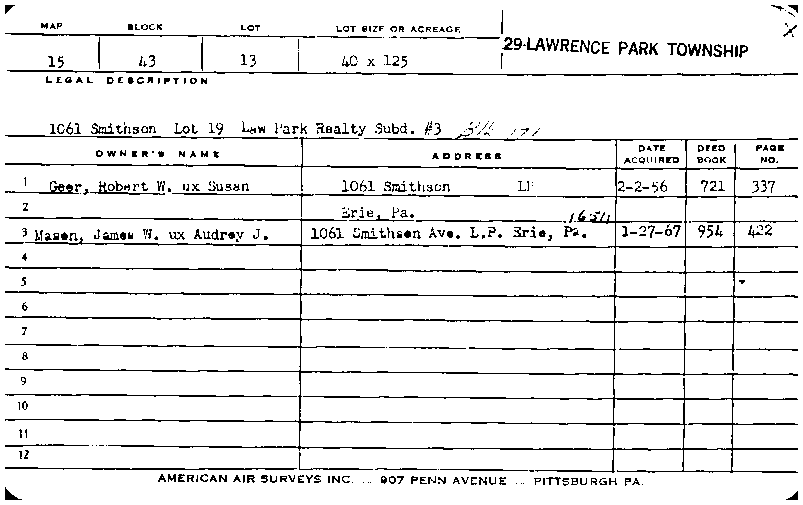 MAP BLOCK LOT LOT SIZE OR ACREAGE
29-LAWRENCE PARK TOWNSHIP
15 43 13 40 x 125
LEGAL DESCRIPTION
1061 Smithson Lot 19 Law Park Realty Subd. #3
OWNER'S NAME ADDRESS DATE ACQUIRED DEED BOOK PAGE NO.
1 Geer, Robert W. ux Susan 1061 Smithson LP 2-2-56 721 337
2 Erie, Pa.
3 Mason, James W. ux Audrey J. 1061 Smithson Ave. L.P. Erie, Pa. 1-27-67 954 422
4
5
6
7
8
9
10
11
12
AMERICAN AIR SURVEYS INC. ... 907 PENN AVENUE ... PITTSBURGH PA.